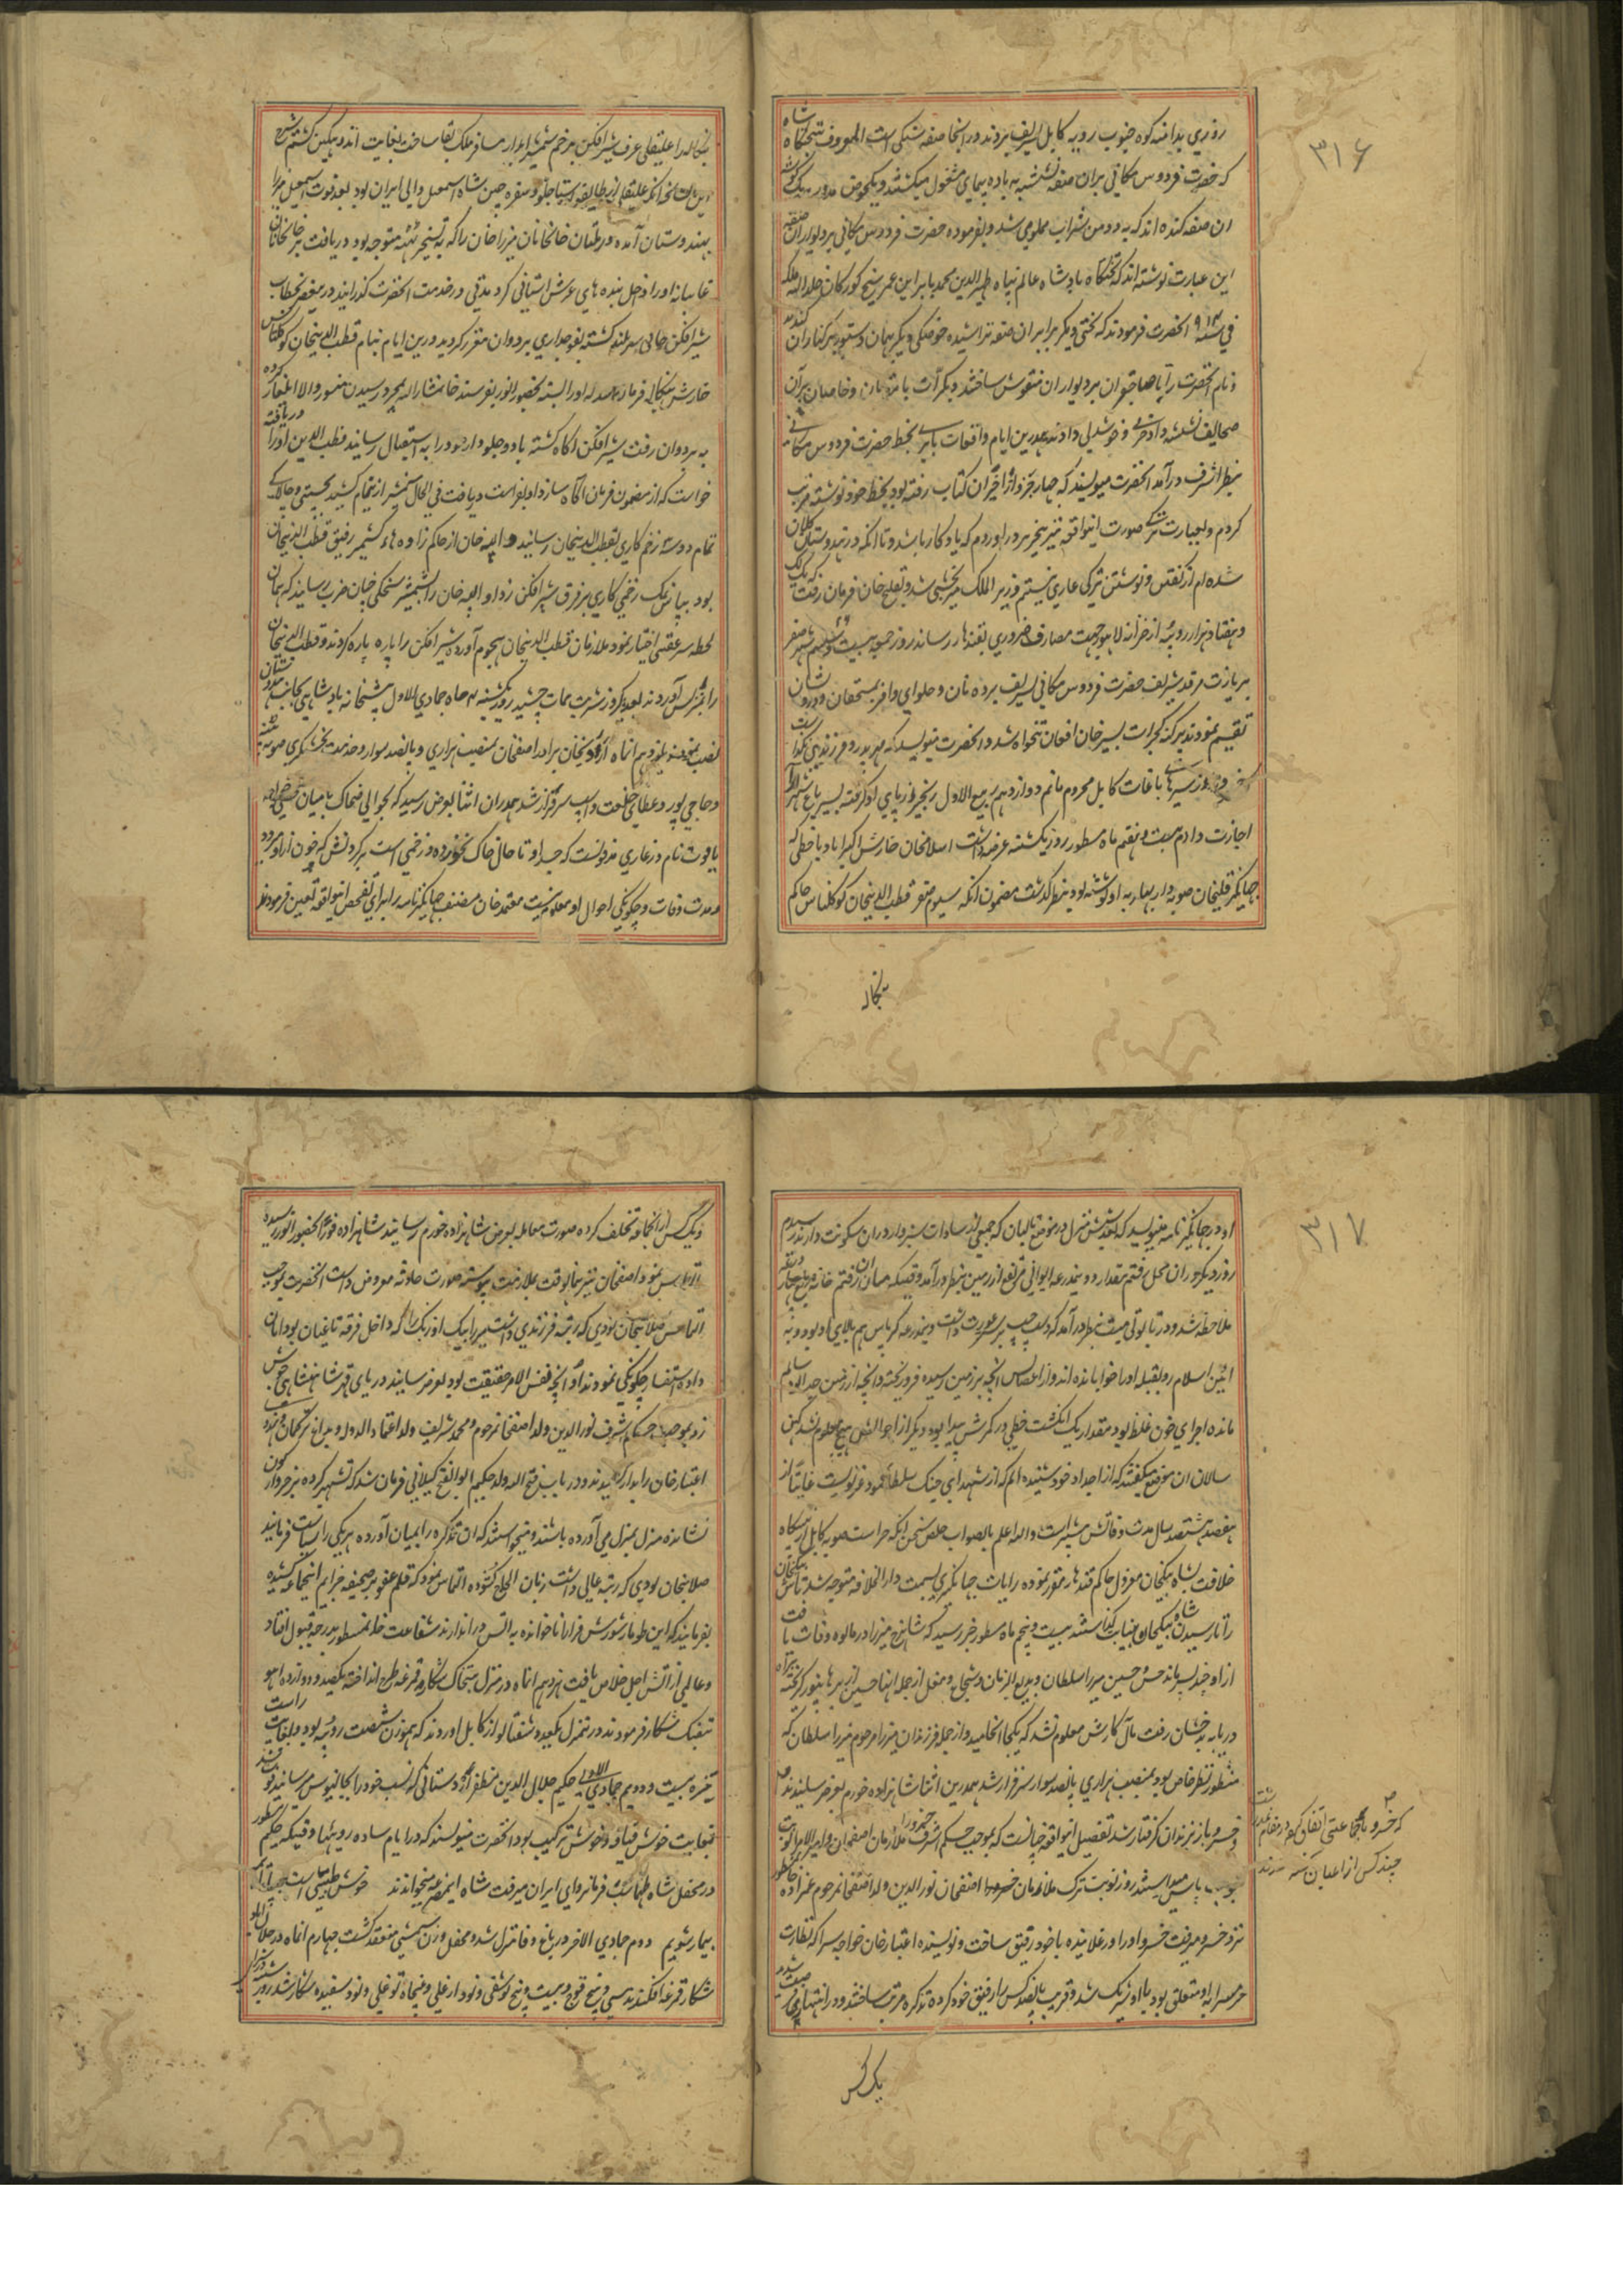 ۳۱۶
روزی بدامنه کوه جنوب رویه کابل تشریف بردند در انجا صفه سنگی است المعروف تختگاه شاه
که حضرت فردوس مکانی بران صفه نشسته به باده پیمای مشغول میکشتند و یکحوض مدور بیک گوشه
ان صفه کنده اند که به دو من شراب مملو می شد و بفرموده حضرت فردوس مکانی بر دیوار ان صفه
این عبارت نوشته اند که تختگاه پادشاه عالم پناه ظهیر الدین محمد بابر ابن عمر شیخ کورکان خلد الله ملکه
فی سنه ۹۱۴ انحضرت فرمودند که تختی دیگر برابر ان صفه تراشیده حوضکی دیگر بهمان دستور بر کنار ان کندند
و نام انحضرت را با صاحبقران بر دیوار ان منقوش ساختند
صحایف نشسته داد خرمی و خوشدلی دادند همدرین ایام واقعات بابری بخط حضرت فردوس مکانی
بنظر اشرف درآمد انحضرت مینویسند که چهار جزو از اخر ان کتاب رفته بود بخط خود نوشته مرتب
کردم و بعبارت ترکی صورت اینواقعه نیز بتحریر دراوردم که یادکار باشد و تا انکه در هندوستان کلان
شده ام از گفتن و نوشتن ترکی عاری نیستم وزیر الملک میر بخشی شد و بقلیج خان فرمان رفت که یک لک
و هفتاد هزار روپیه از خزانه لاهور جهت مصارف ضروری بقندهار رساند روز جمعه بیست و ششم شهر صفر
بزیارت مرقد شریف حضرت فردوس مکانی تشریف برده نان و حلوای وافر بمستحقان و درویشان
تقسیم نمودند پرکنه کجرات بشیر خان افغان تنخواه شد و انحضرت مینویسد که مهر پدر و فرزندی نکذاشت
خسرو از سیر های باغات کابل محروم مانم دوازدهم ربیع الاول زنجیر از پای او کرفته بسیر باغ شهرارا
اجازت دادم بیست و هفتم ماه مسطور روز یکشنبه عرضداشت اسلامخان حارس اکبراباد با خطی که
جهانکیر قلیخان صوبه دار بهار به او نوشته بود بنظر گذشت مضمون انکه سیوم صفر قطب الدینخان کوکلتاش حاکم
بنکاله
بنکاله را علیقلی عرف شیرافکن بزخم شمشیر ابدار مسافر ملک بقا ساخت
این داستان انکه علیقلی از طایفه استاجلو و سفره چین شاه اسمعیل والی ایران بود بعد فوت اسمعیل میرزا
بهندوستان آمده در ملتان خانخانان میرزا خان را که به تسخیر تته متوجه بود دریافت میر خانخانان
غایبانه او را داخل بنده های عرش اشتیانی کرد مدتی در خدمت انحضرت گذرانید درین عصر بخطاب
شیر افکن خانی سر بلند کشته بفوجداری بردوان مقرر کردید درین ایام بنام قطب الدینخان کوکلتاش
حارس بنکاله فرمان صادر شد که او را البته بحضور انور بفرستد خانمشار الیه بمجرد رسیدن منشور والا ایلغار کرده
به بردوان رفت شیر افکن اکاه کشته با دو جلودار خود را به استقبال رسانید قطب الدین او را دریافته
خواست که از مضمون فرمان آگاه سازد او بفراست دریافت فی الحال شمشیر از نیام کشید بچستی و چالاکی
تمام دو سه زخم کاری بقطب الدینخان رسانید انبه خان از حاکم زاده های کشمیر رفیق قطب الدینخان
بود بپاس نمک زخمی کاری بر فرق شیر افکن زد او انبه خان را شمشیر سیخکی چنان ضرب رسانید که همان
لحظه سفر عقبی اختیار نمود ملازمان قطب الدینخان هجوم آورده شیر افکن را پاره پاره کردند و قطب الدینخان
بعد یکروز شربت ممات چشید روز یکشنبه ۳ ماه جمادی الاول پیشخانه پادشاهی بجانب هندوستان
نصب نمودند هم انماه بیخان برادر اصفخان بمنصب هزاری و پانصد سوار و خدمت بخشیکری صوبه پتنه
و حاجی پور و عطای خلعت و اسپ سرافراز شد همدران اثنا بعرض رسید که بحوالی ضحاک بامیان قبر خواجه
یاقوت نام در غاری مدفونست که جسد او تا حال خاک نخورده و زخمی است بر کردنش که خون ازو میرود
و مدت وفات و چگونگی احوال او معلوم نیست معتمد خان مصنف جهانکیر نامه را برای تفحص اینواقعه تعین فرمودند
۳۱۷
او در جهانکیر نامه مینویسد که بعد شش منزل در موضع بامیان که جمعی از سادات سبزوار دران سکونت دارند رسیدم
روز دیکر دران محل رفتم مقدار دو نیمذرعه ایوانی مرتفع از زمین بنظر درآمد وقتیکه میان ان رفتم خانه مربع چهار ذرعه
ملاحظه شد و در تابوتی میت بنظر درآمد که دست چپ بر عورت داشت و نیمذرعه کرپاس هم بالای او بود و به
ائین اسلام رو بقبله او را خوابانده اند و از اعضایش انچه بر زمین رسیده فرو ریخته و انچه از زمین جدا بود سالم
مانده اجرای خون غلط بود مقدار یک انگشت خطی در کمرش پیدا بود و دیکر از احوالش هیچ معلوم نشد کهن
سالان ان موضع میگفتند که از اجداد خود شنیده ایم که از شهدای جنک سلطان محمود غزنویست غایتا از
هفتصد هشتصد سال مدت وفاتش بیشتر است والله اعلم بالصواب ملخص سخن انکه حراست صوبه کابل از پیشکاه
خلافت بشاه بیکخان معزول حاکم قندهار مقرر نموده رایات جهانکیری بسمت دار الخلافه متوجه شد
را تا رسیدن شاه بیکخان به نیابت گذاشتند بیست و پنجم ماه مسطور خبر رسید که شاهرخ میرزا در مالوه وفات یافت
ازو چند پسر ماند حسن و حسین میرزا سلطان و بدیع الزمان و شجاع و مغل از جمله انها حسین از برهانپور گریخته بیراه
دریا به بدخشان رفت مآل کارش معلوم نشد که بکجا انجامید و از جمله فرزندان میرزا مرحوم میرزا سلطان که
منظور نظر خاص بود بمنصب هزاری پانصد سوار سرافراز شد همدرین اثنا شاهزاده خورم بعرض رسانیدند
و خسرو باز بزندان کرفتار شد تفصیل اینواقعه چنانست که بموجب حکم اشرف خسرو را ملازمان اصفخان و امیر الامرا نوبت
بنوبت پاس میداشتند روز نوبت ترک ملازمان خسرو را اصفخان نور الدین ولد اصفخانمرحوم عمزاده خان مسطور
نزد خسرو میرفت خسرو او را ورغلانیده با خود رفیق ساخت و نویسنده اعتبار خان خواجه سرا که نظارت
حرمسرا به او متعلق بود با او شریک شد و قریب پانصد کس را رفیق خود کرده تذکره مرتب ساختند و در انتهاز فرصت شدند
که خسرو با جماعتی اتفاق کرده در مقام غدر است
چند کس از اعیان
یک کس
و یک کس از انجماعه تخلف کرده صورت معامله بعرض شاهزاده خورم رسانید شاهزاده فورا بحضور انور رسیده
التماس نمود اصفخان نیز همانوقت بملازمت پیوسته صورت حادثه معروض داشت انحضرت بموجب
التماس صلابتخان لودی که رتبه فرزندی داشت میرزا بیک اوزبک را که داخل فرقه باغیان بود امان
داده استفسار چگونگی نمودند او انچه نفس الامر حقیقت بود بعرض رسانید دریای قهر شاهنشاهی جوش
زد بموجب حکم اشرف نور الدین ولد اصفخانمرحوم و محمد شریف ولد اعتماد الدوله و بداغ ترکمان و هندوی
اعتبار خان را بدار کشیدند و در باب فتح الله ولد حکیم ابو الفتح گیلانی فرمان شد که تشهیر کرده بر خر واژگون
نشانده منزل بمنزل می آورده باشند و میخواستند که ان تذکره را بمیان آورده هر یکی را سیاست فرمایند
صلابتخان لودی که رتبه عالی داشت زبان الحاح کشوده التماس نمود که قلم عفو بر صحیفه جرایم انجماعه کشیده
بفرمایند که این طومار شورش فزا را ناخوانده به اتش دراندازند شفاعت خانمسطور بدرجه قبول افتاد
و عالمی از اتش اجل خلاص یافت نوزدهم انماه در منزل شکار قمرغه طرح انداخته یکصد و دوازده اهو
بتفنگ شکار فرمودند در منزل یکعدد شفتالو از کابل اوردند که بوزن شصت روپیه بود و بغایت راست
بیست و دویم جمادی الاولی حکیم جلال الدین مظفر اردستانی که نسب خود را بجالینوس میرسانید فوت شد
بغایت خوش قیافه و خوش ترکیب بود انحضرت مینویسند که در ایام ساده روئیها وقتیکه حکیم مسطور
در محفل شاه طهماسب فرمانروای ایران میرفت شاه این مصرعه میخواندند خوش طبیبی است بیا تا همه
بیمار شویم دوم جمادی الاخر در باغ وفا منزل شد و محفل وزن شمسی منعقد گشت چهارم انماه در جلال اباد
شکار قمرغه افکندند سی و پنج قوچ و بیست و پنج تکه و نود ارغلی و پنجاه توغلی و نود سفیده شکار شد روز